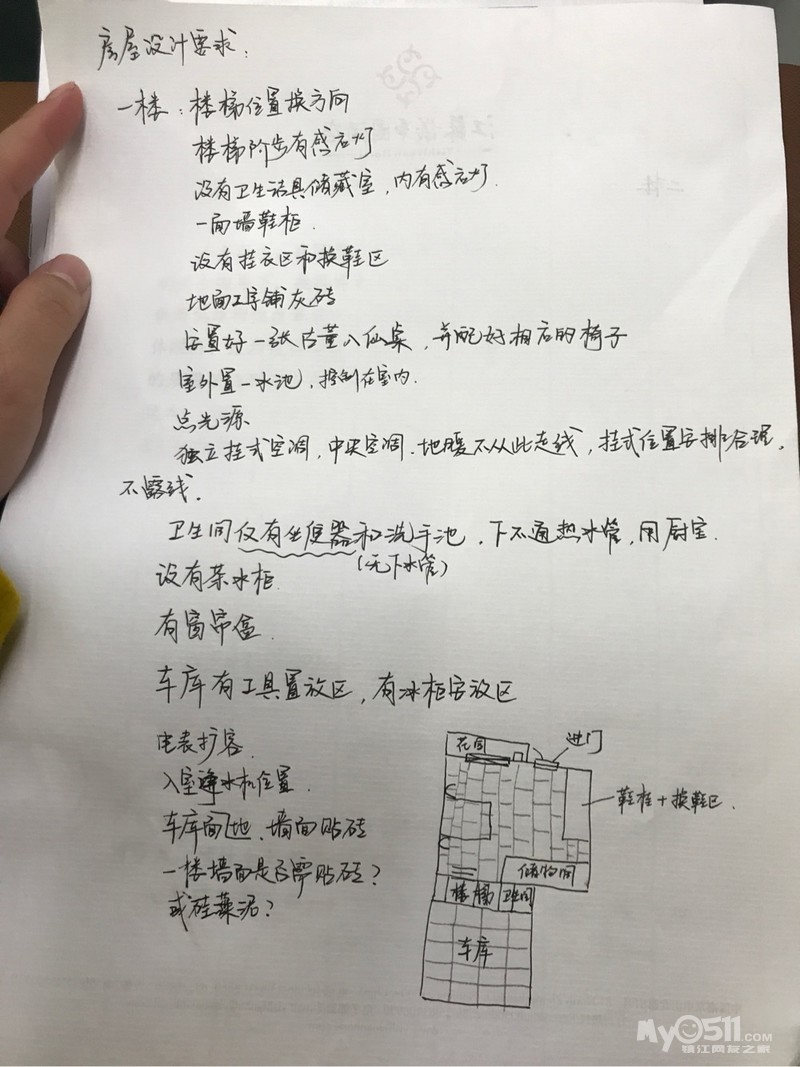 房屋设计要求:
一楼: 楼梯位置换方向
楼梯阶步有感应灯
设有卫生洁具储藏室, 内有感应灯.
一面墙鞋柜.
设有挂衣区和换鞋区
地面工字铺灰砖
安置好一张古董八仙桌, 并配好相应的椅子
室外置一水池, 控制在室内.
点光源
独立挂式空调, 中央空调、地暖不从此走线, 挂式位置安排合理,
不露线.
卫生间仅有坐便器和洗手池, 下不通热水管, 用厨宝.
(无下水管)
设有茶水柜.
有窗帘盒.
车库有工具置放区, 有冰柜安放区
电表扩容.
入室净水机位置.
车库面地、墙面贴砖
一楼墙面是否需贴砖?
或硅藻泥?
花园
进门
鞋柜+换鞋区.
储物间
楼梯
卫间
车库
二楼
MyO511.COM
镇江网友之家